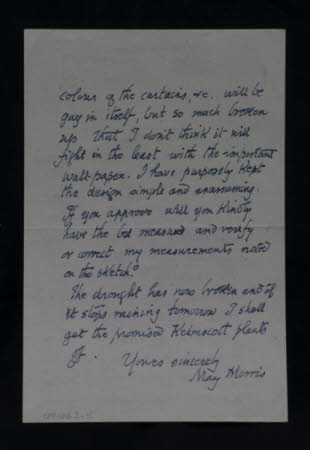 colour of the curtains, &c. will be
gay in itself, but so much broken
up that I don't think it will
fight in the least with the important
wall-paper. I have purposely kept
the design simple and unassuming.
If you approve will you kindly
have the bed measured and verify
or correct my measurements noted
on the sketch?
The drought has now broken and if
it stops raining tomorrow I shall
get the promised Kelmscott plants
Yours sincerely
May Morris